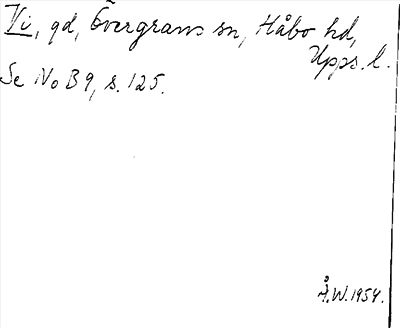 Vi, gd, Övergrans sn, Håbo hd,
Upps. l.
Se No B9, s. 125.
Å.W. 1954.